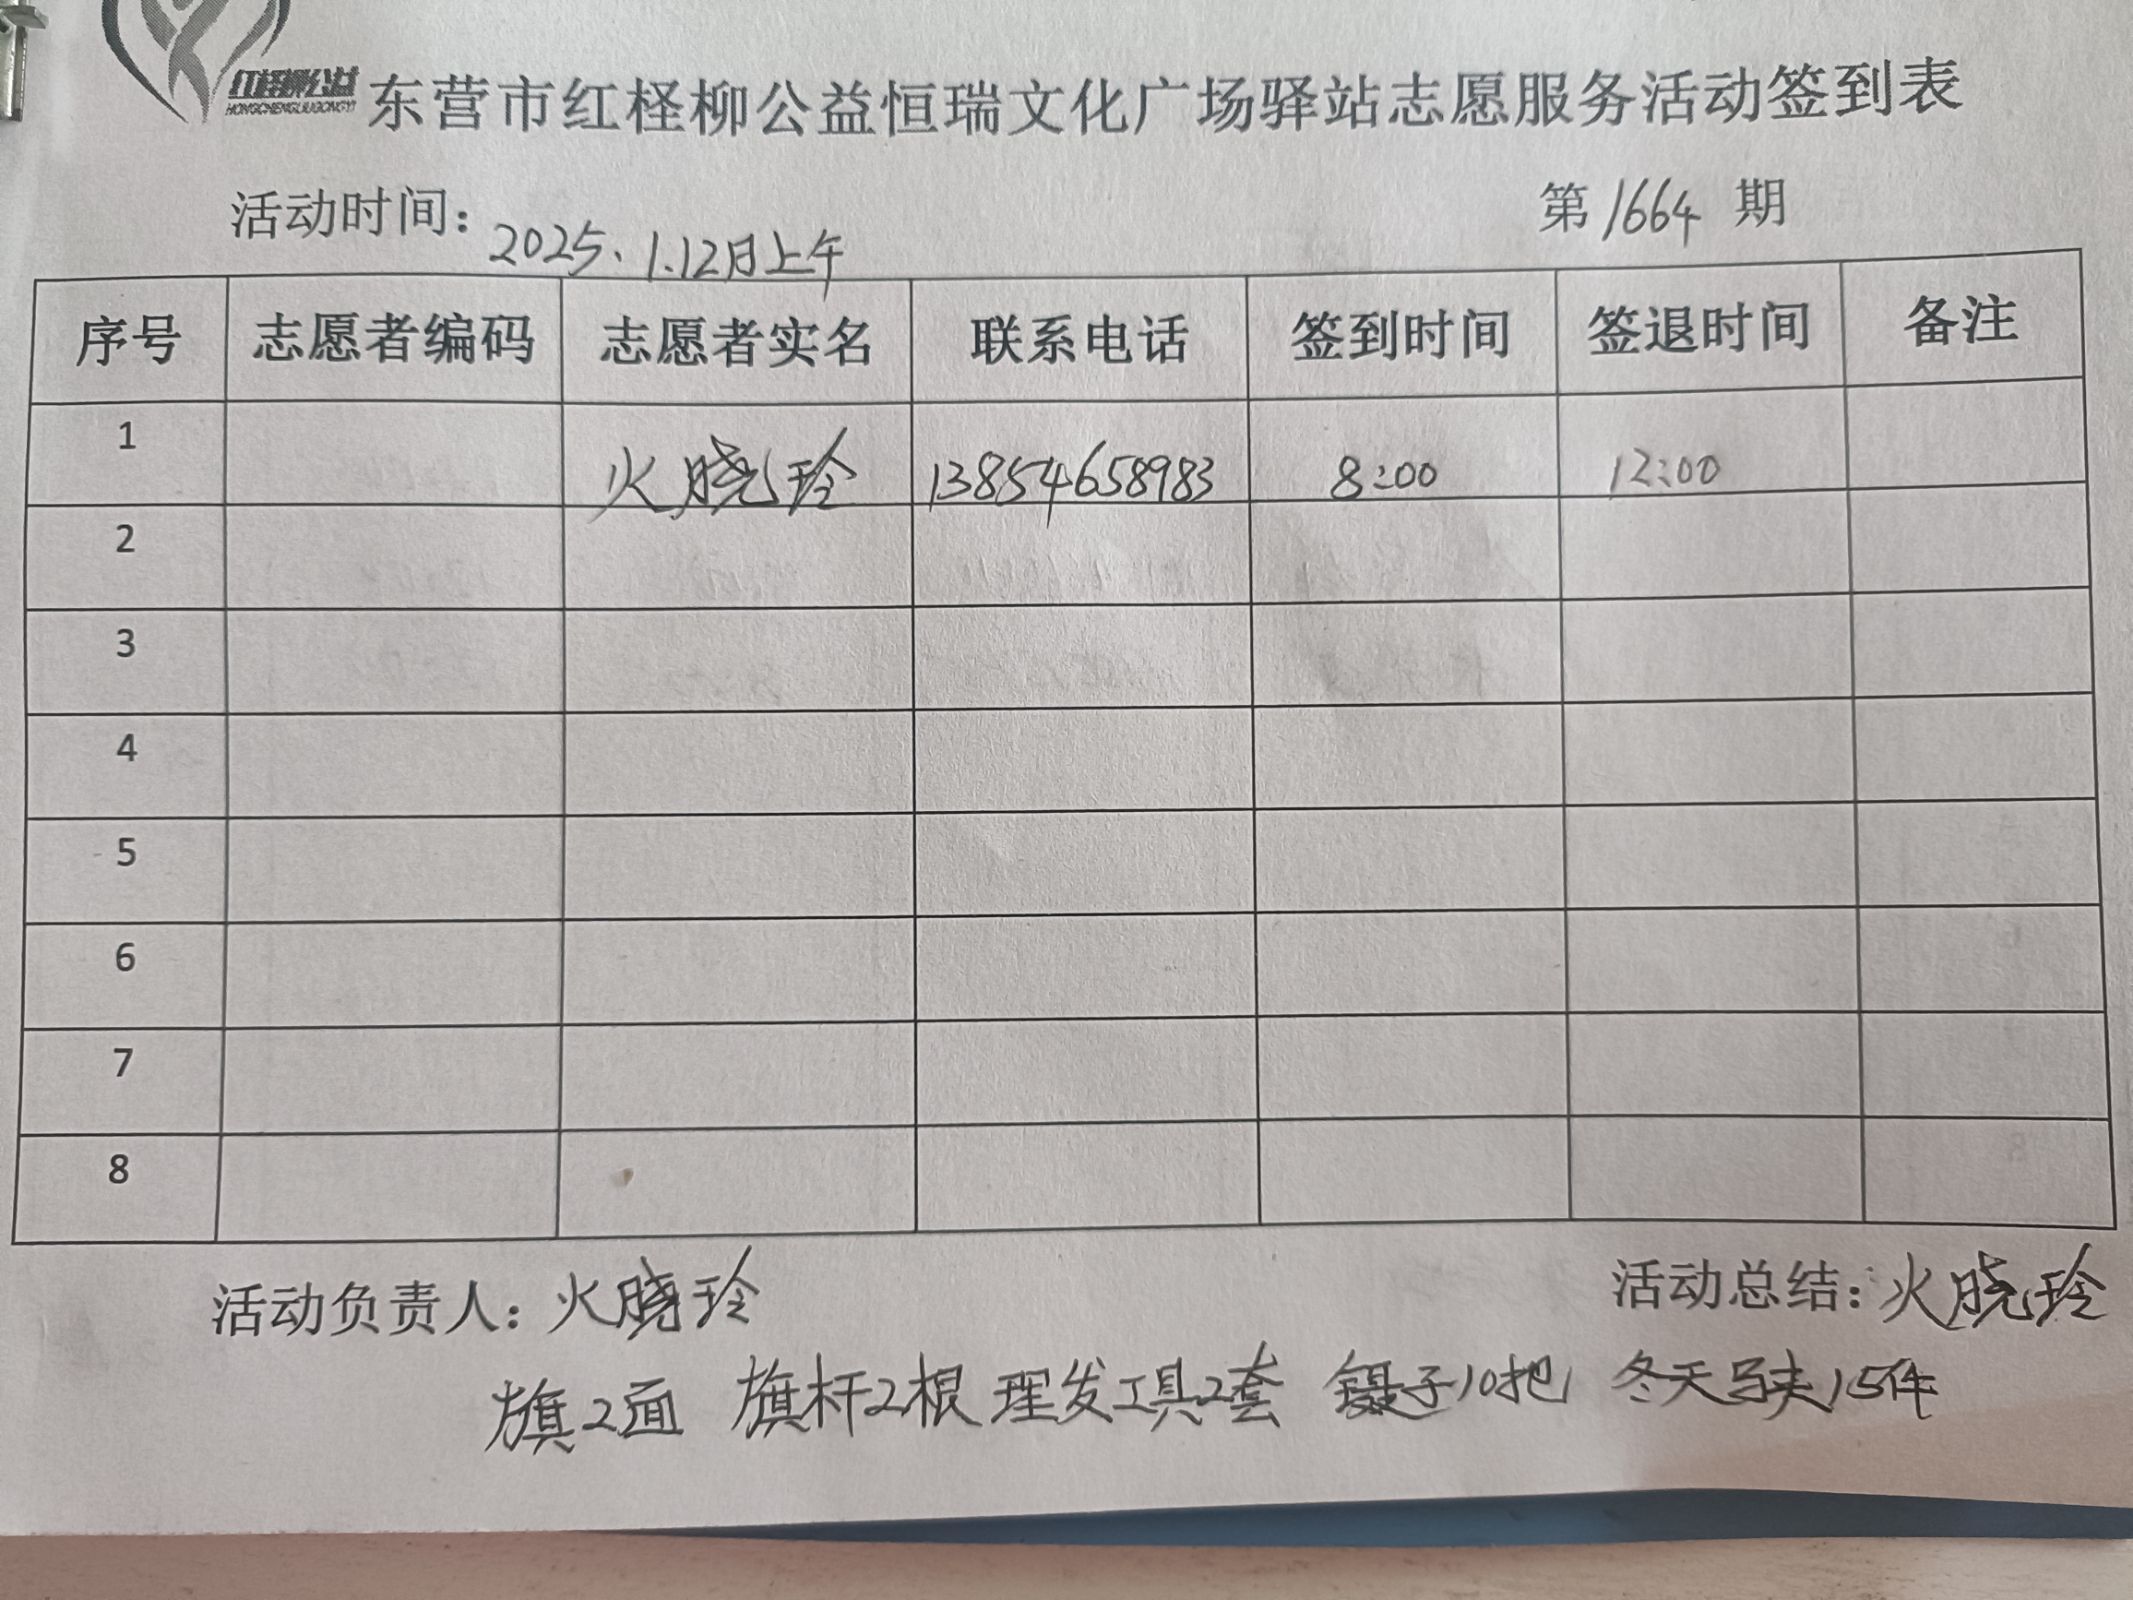 红柽柳公益
HONGCHENGLIUGONGYI
东营市红柽柳公益恒瑞文化广场驿站志愿服务活动签到表
活动时间：2025、1.12日上午 第1664期
序号 志愿者编码 志愿者实名 联系电话 签到时间 签退时间 备注
1 火晓玲 13854658983 8:00 12:00
2
3
4
5
6
7
8
活动负责人：火晓玲 活动总结：火晓玲
旗2面 旗杆2根 理发工具2套 镊子10把 冬天马夹15件